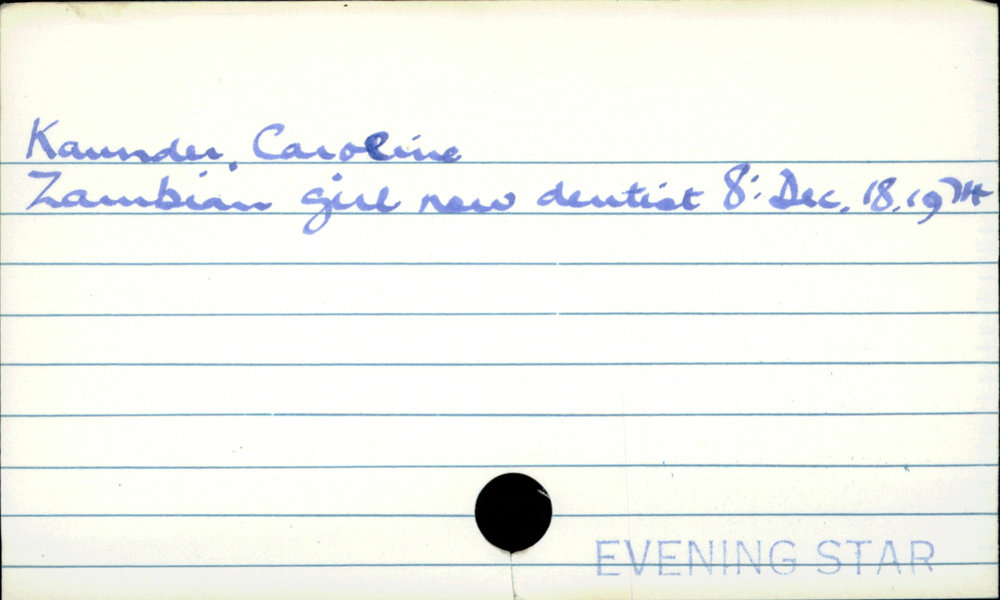 Kaunder, Caroline
Zambian girl now dentist 8: Dec. 18. 1974
EVENING STAR